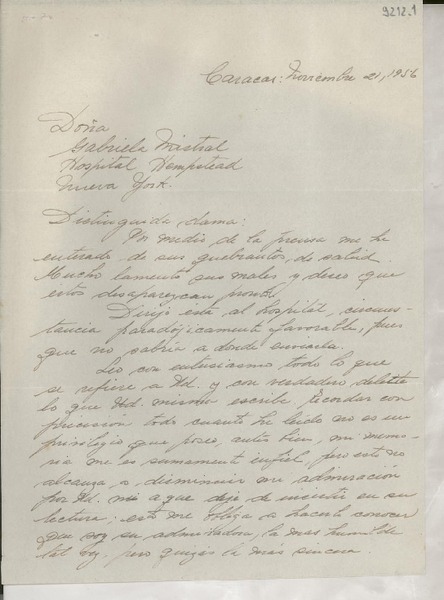 9212.1
Caracas: Noviembre 21, 1956
Doña
Gabriela Mistral
Hospital Hempstead
Nueva York.
Distinguida dama:
Por medio de la prensa me he
enterado de sus quebrantos de salud.
Mucho lamento sus males y deseo que
estos desaparezcan pronto.
Dirijo esta al hospital, circuns-
tancia paradójicamente favorable, pues
que no sabría a donde enviarla.
Leo con entusiasmo todo lo que
se refiere a Ud. y con verdadero deleite
lo que Ud. misma escribe. Recordar con
precisión todo cuanto he leído no es un
privilegio que poseo, antes bien, mi memo-
ria me es sumamente infiel, pero esto no
alcanza a disminuir mi admiración
por Ud. ni a que deje de insistir en su
lectura; esto me obliga a hacerle conocer
que soy su admiradora, la mas humilde
tal vez, pero quizás la más sincera.